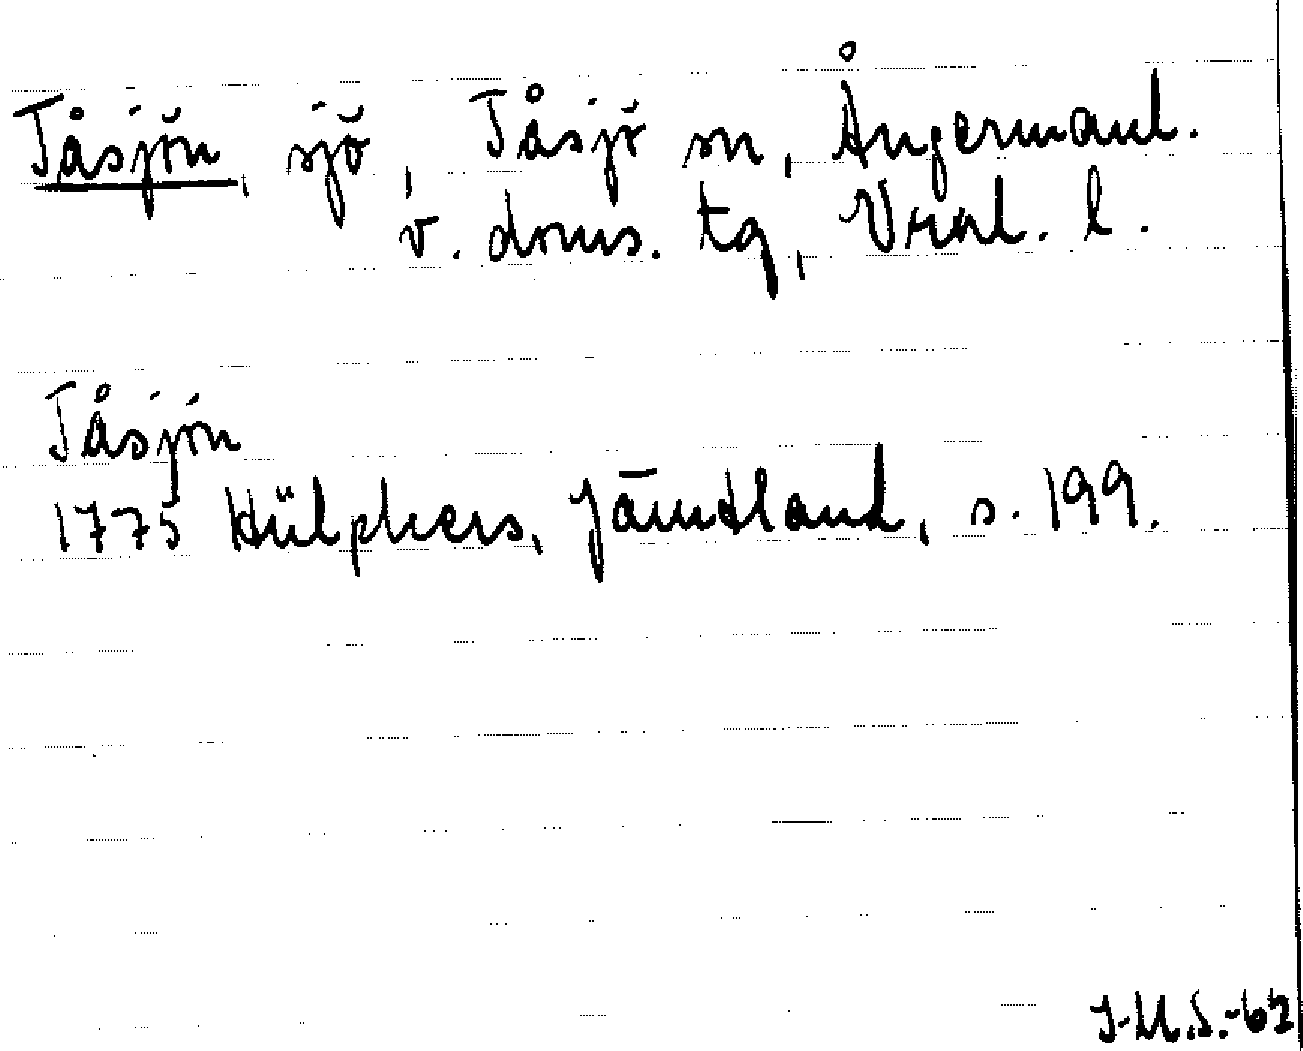 Tåsjön, sjö, Tåsjö sn, Ångermanl.
v. doms. tg, Vnal. l.
Tåsjön
1775 Hülphers, Jämtland, s. 199.
J-M.S.-62